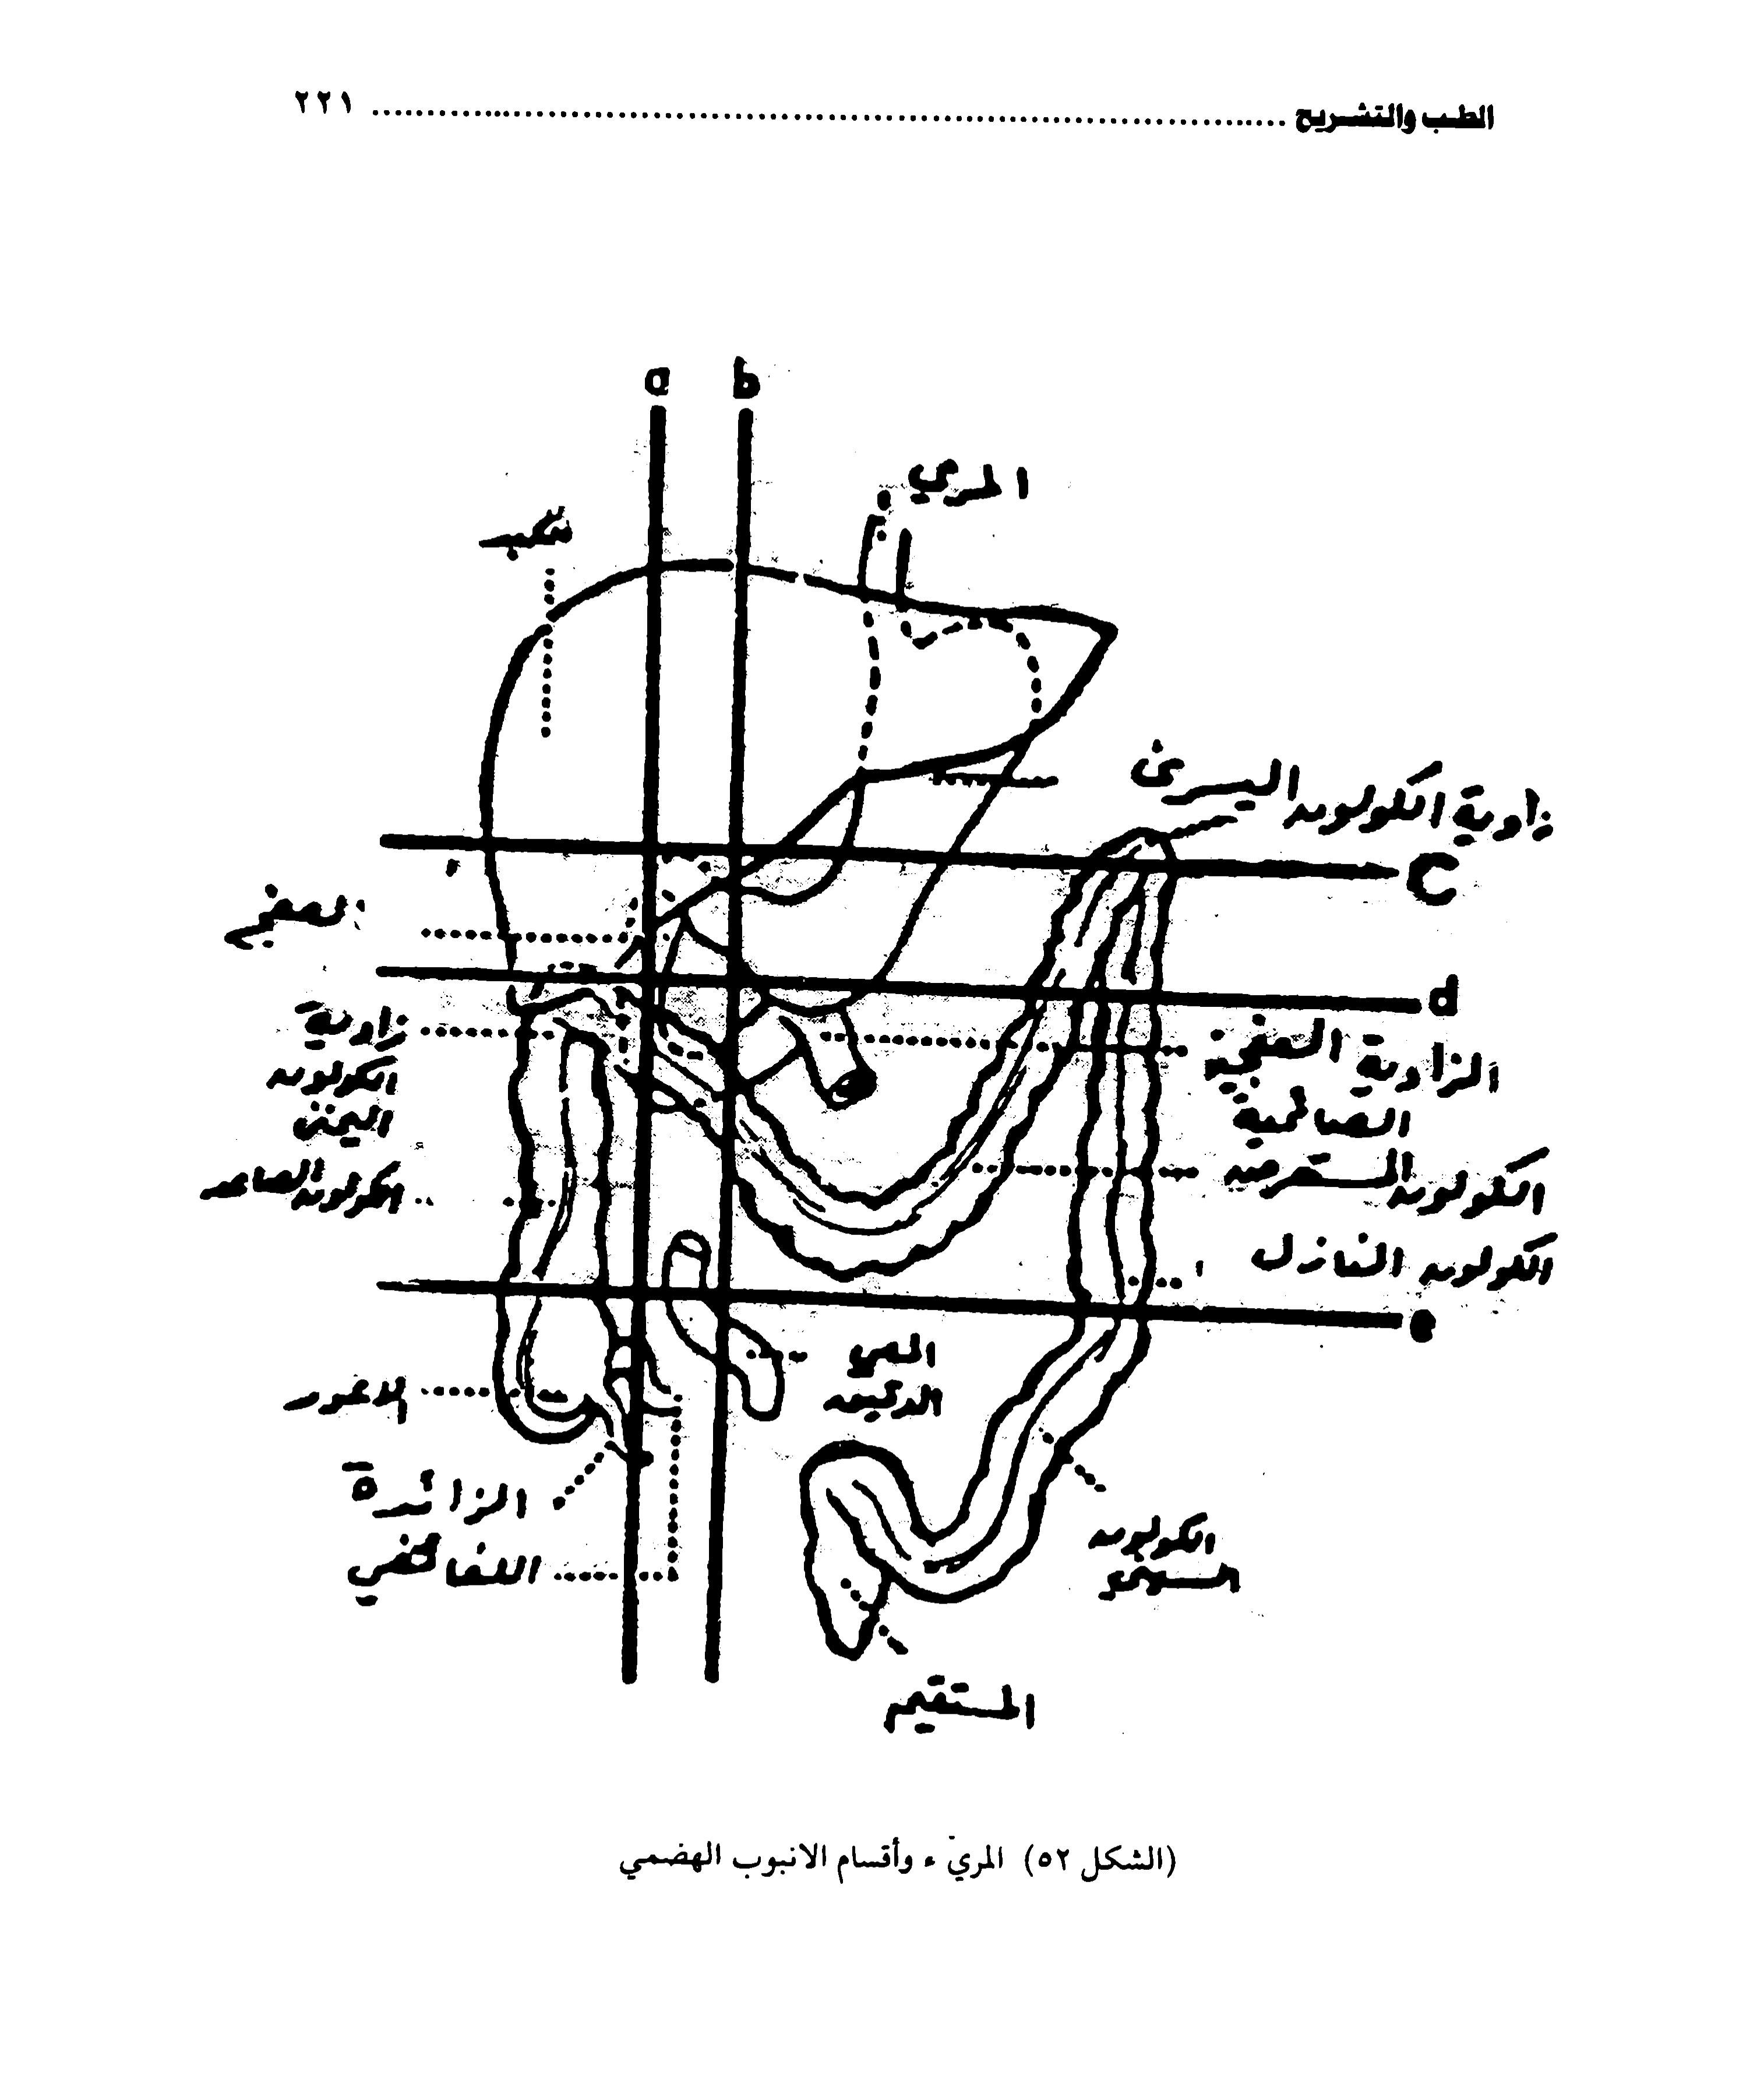 الطب والتشريح ........ ٢٢١
a b
المري
كبد
زاوية الكولون اليسرى
C
العفج
d
زاوية
الكولون
اليمنى
الزاوية العفجية
الصائمية
الكولون المستعرض
الكولون الصاعد
الكولون النازل
e
المعي
الدقيق
الاعور
الزائدة
اللفائفي
الكولون
السيني
المستقيم
(الشكل ٥٢) المريّ ء وأقسام الانبوب الهضمي